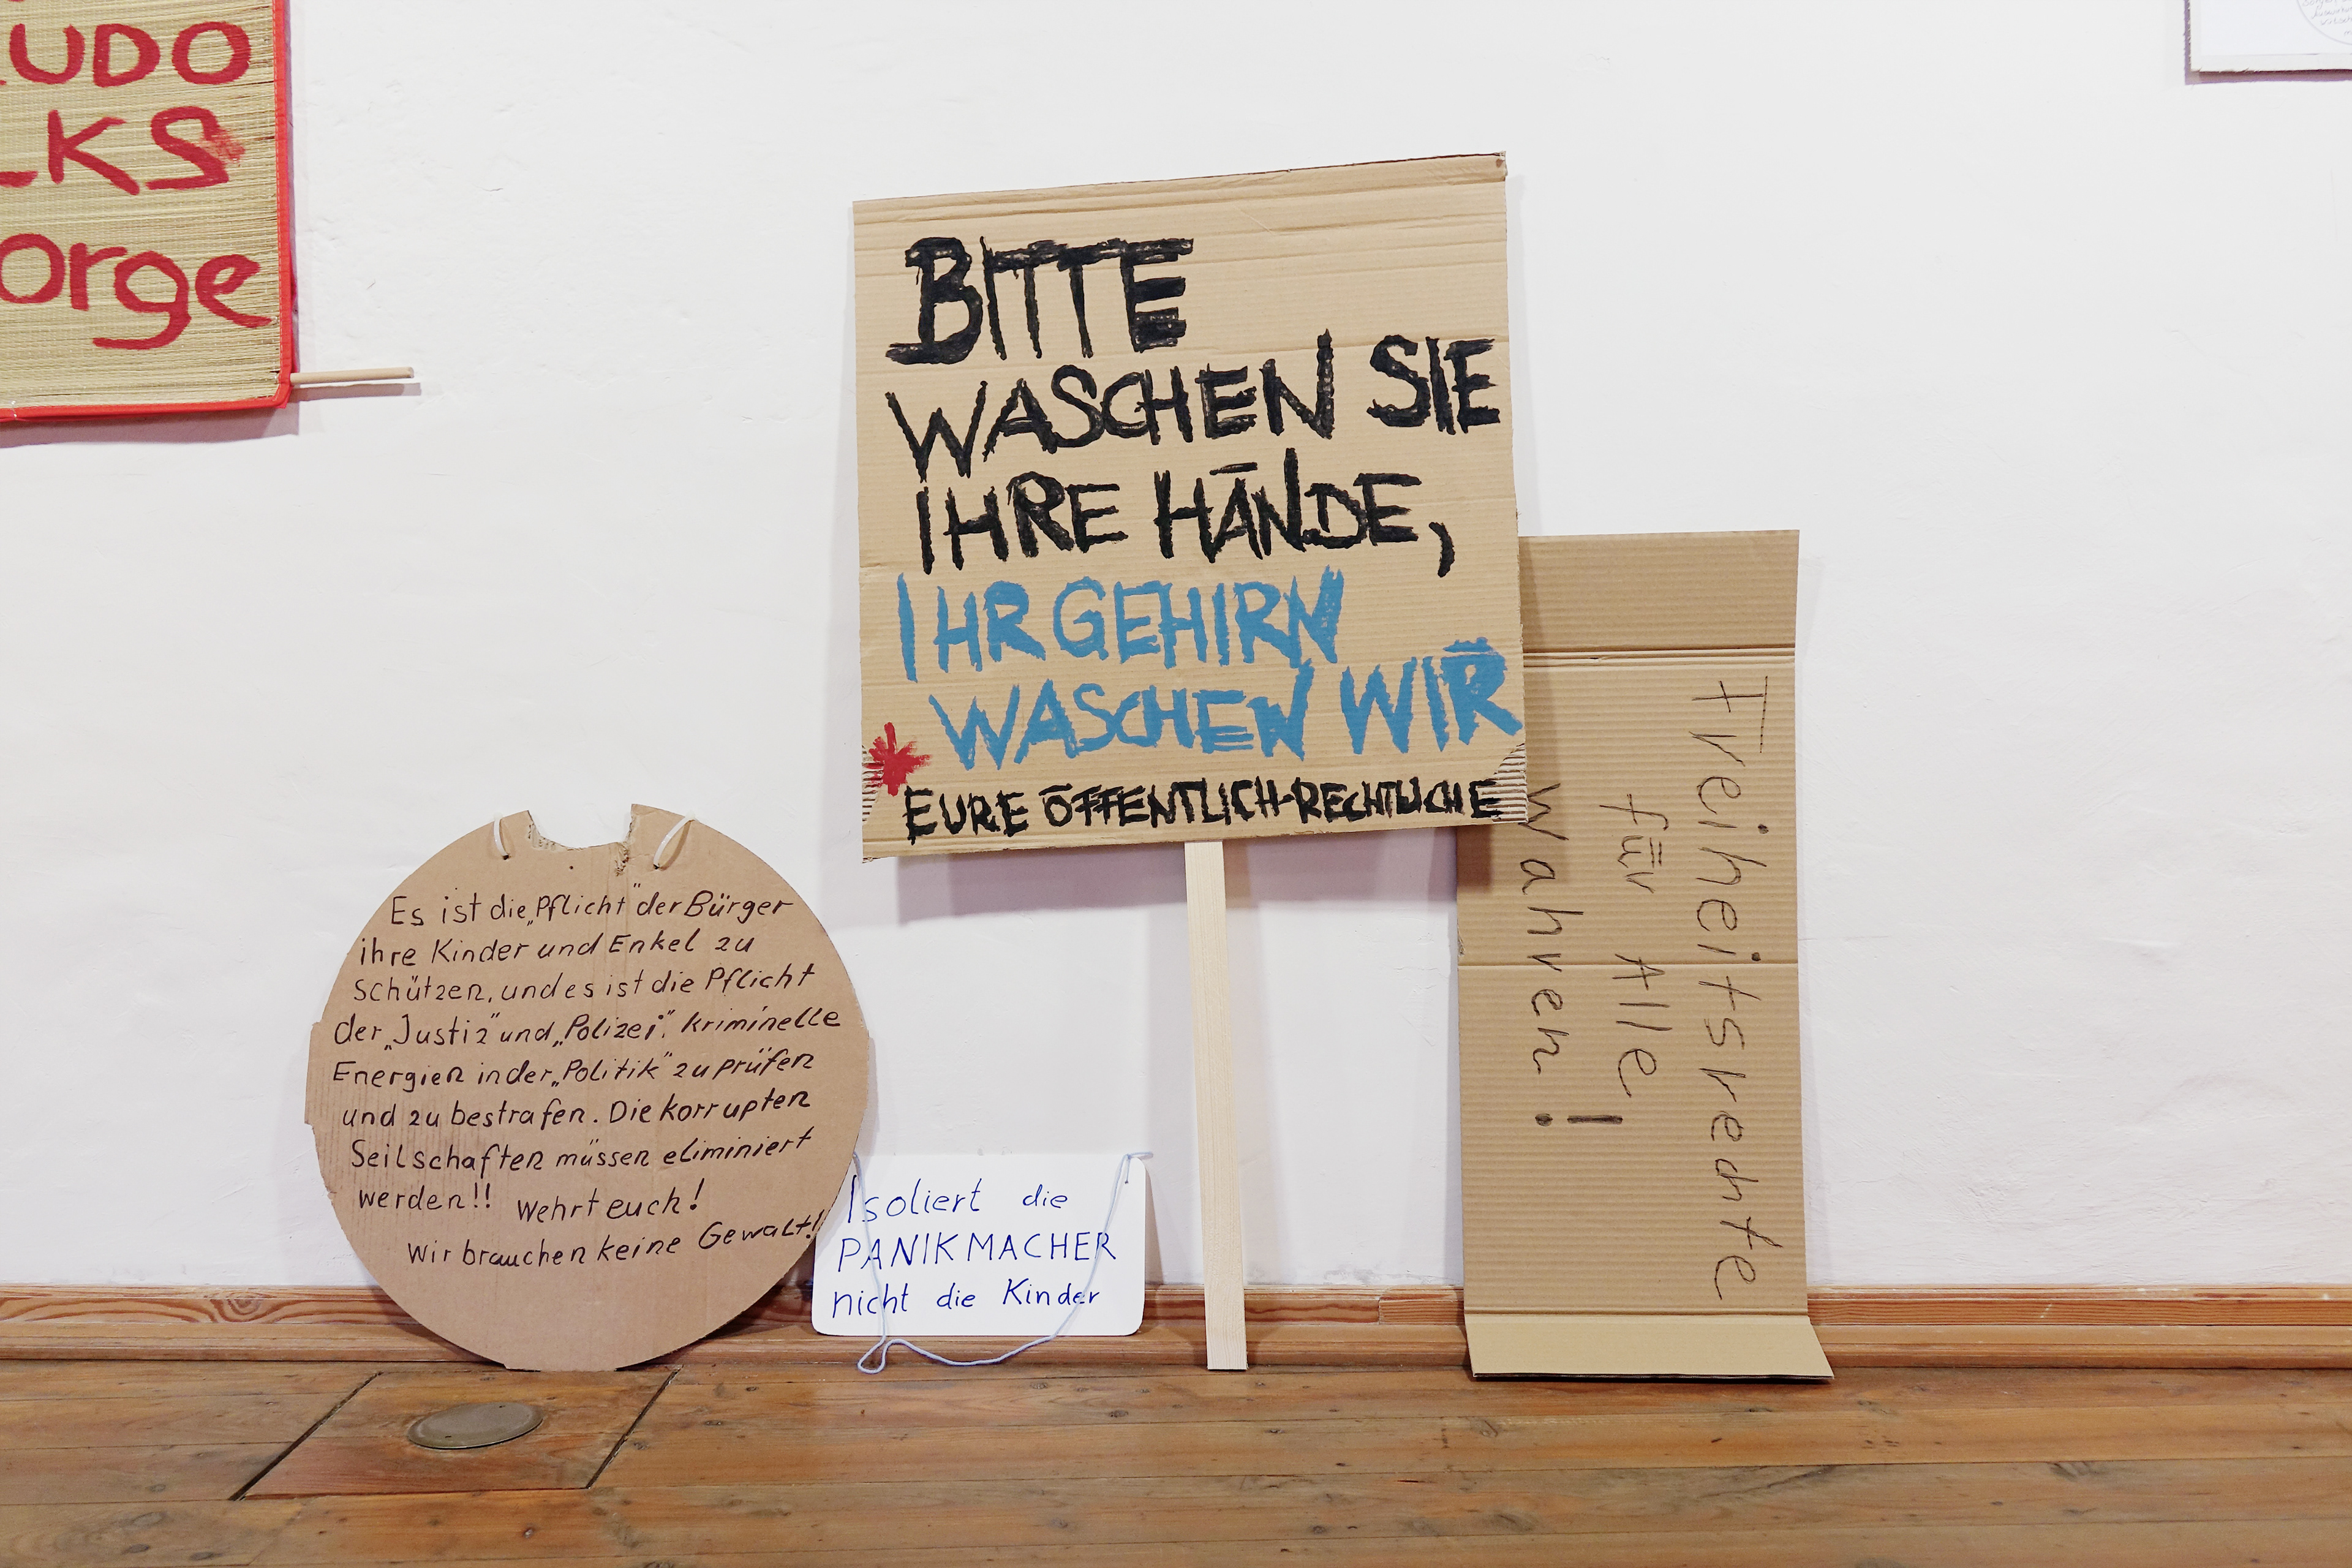 UDO
LKS
orge
BITTE
WASCHEN SIE
IHRE HÄNDE,
IHR GEHIRN
WASCHEN WIR
* EURE ÖFFENTLICH-RECHTLICHE
Es ist die „Pflicht" der Bürger
ihre Kinder und Enkel zu
schützen, und es ist die Pflicht
der „Justiz" und „Polizei", kriminelle
Energien in der „Politik" zu prüfen
und zu bestrafen. Die korrupten
Seilschaften müssen eliminiert
werden!! Wehrt euch!
Wir brauchen keine Gewalt!
Isoliert die
PANIKMACHER
nicht die Kinder
Freiheitsrechte
für Alle!
wahren!